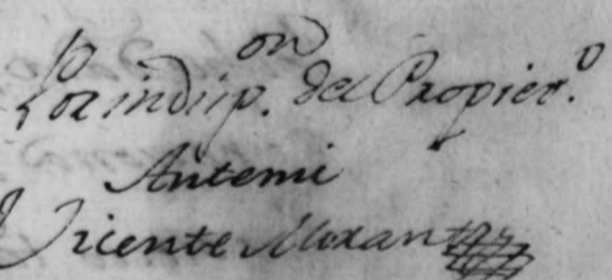 Por indisp.on del Propiet.o
Antemi
Vicente Moran